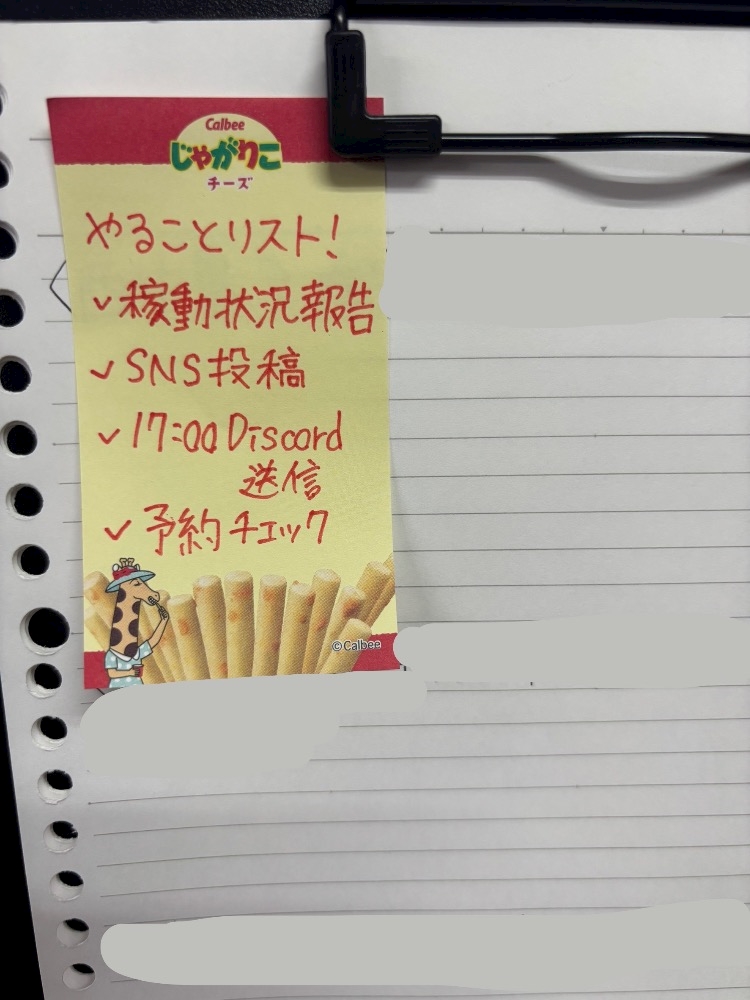 Calbee
じゃがりこ
チーズ
やることリスト!
✓稼動状況報告
✓SNS投稿
✓17:00 Discord
送信
✓予約チェック
©Calbee